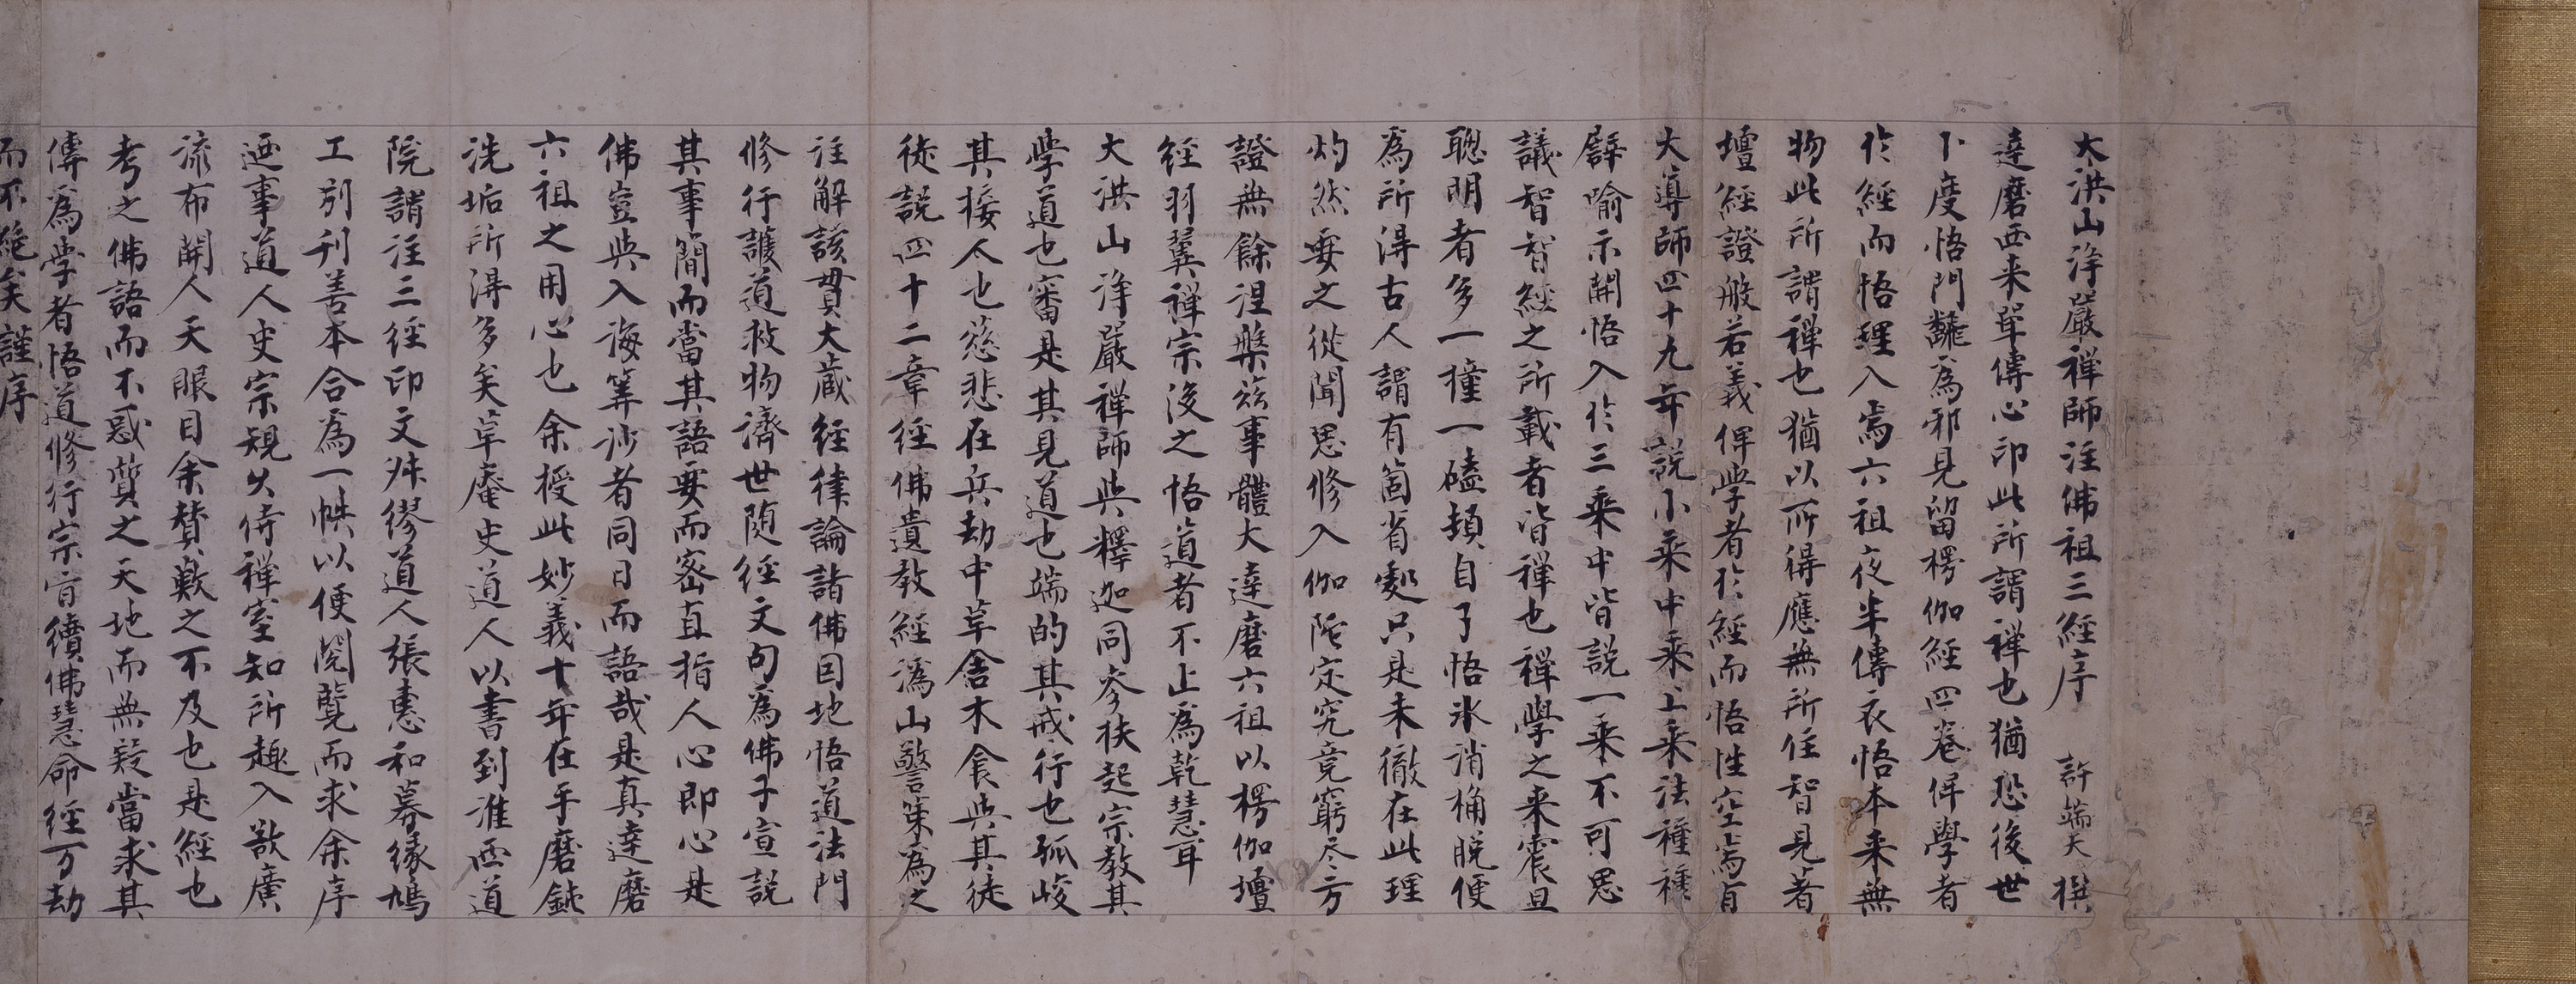 大洪山淨嚴禪師注佛祖三經序 許端夫撰
達磨西来單傳心印此所謂禪也猶恐後世
卜度悟門離為邪見留楞伽經四卷俾學者
於經而悟理入焉六祖夜半傳衣悟本来無
物此所謂禪也猶以所得應無所住智見著
壇經證般若義俾學者於經而悟性空焉盲
大導師四十九年說小乘中乘上乘法種種
譬喻示開悟入於三乘中皆說一乘不可思
議智智經之所載者皆禪也禪學之来震旦
聰明者多一撞一磕頓自了悟氷消桶脫便
為所得古人謂有箇省處只是未徹在此理
灼然要之從聞思修入伽陀定究竟窮尽方
證無餘涅槃茲事體大達磨六祖以楞伽壇
經羽翼禪宗後之悟道者不止為乾慧耳
大洪山淨嚴禪師與釋迦同參扶起宗教其
學道也審是其見道也端的其戒行也孤峻
其接人也慈悲在兵劫中草舍木食與其徒
徒說四十二章經佛遺教經溈山警策為之
注解該貫大藏經律論諸佛因地悟道法門
修行護道救物濟世随經文句為佛子宣說
其事簡而當其語要而密直指人心即心是
佛豈與入海筭沙者同日而語哉是真達磨
六祖之用心也余授此妙義十年在手磨鈍
洗垢所得多矣草庵史道人以書到淮西道
院謂注三經印文舛繆道人張憲和募緣鳩
工別刊善本合為一帙以便閱覽而求余序
迺事道人史宗規久侍禪室知所趣入欲廣
流布開人天眼目余賛歎之不及也是經也
考之佛語而不惑質之天地而無疑當求其
傳為學者悟道修行宗旨續佛慧命經万劫
而不絶矣謹序